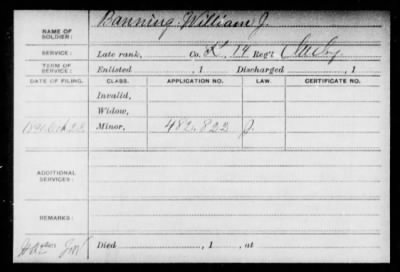 Banning, William J.
NAME OF SOLDIER:
SERVICE: Late rank, Co. K, 14 Reg't
TERM OF SERVICE: Enlisted , 1 Discharged , 1
DATE OF FILING. CLASS. APPLICATION NO. LAW. CERTIFICATE NO.
Invalid,
Widow,
Minor, 482.822 J.
ADDITIONAL SERVICES:
REMARKS:
Died , 1 , at